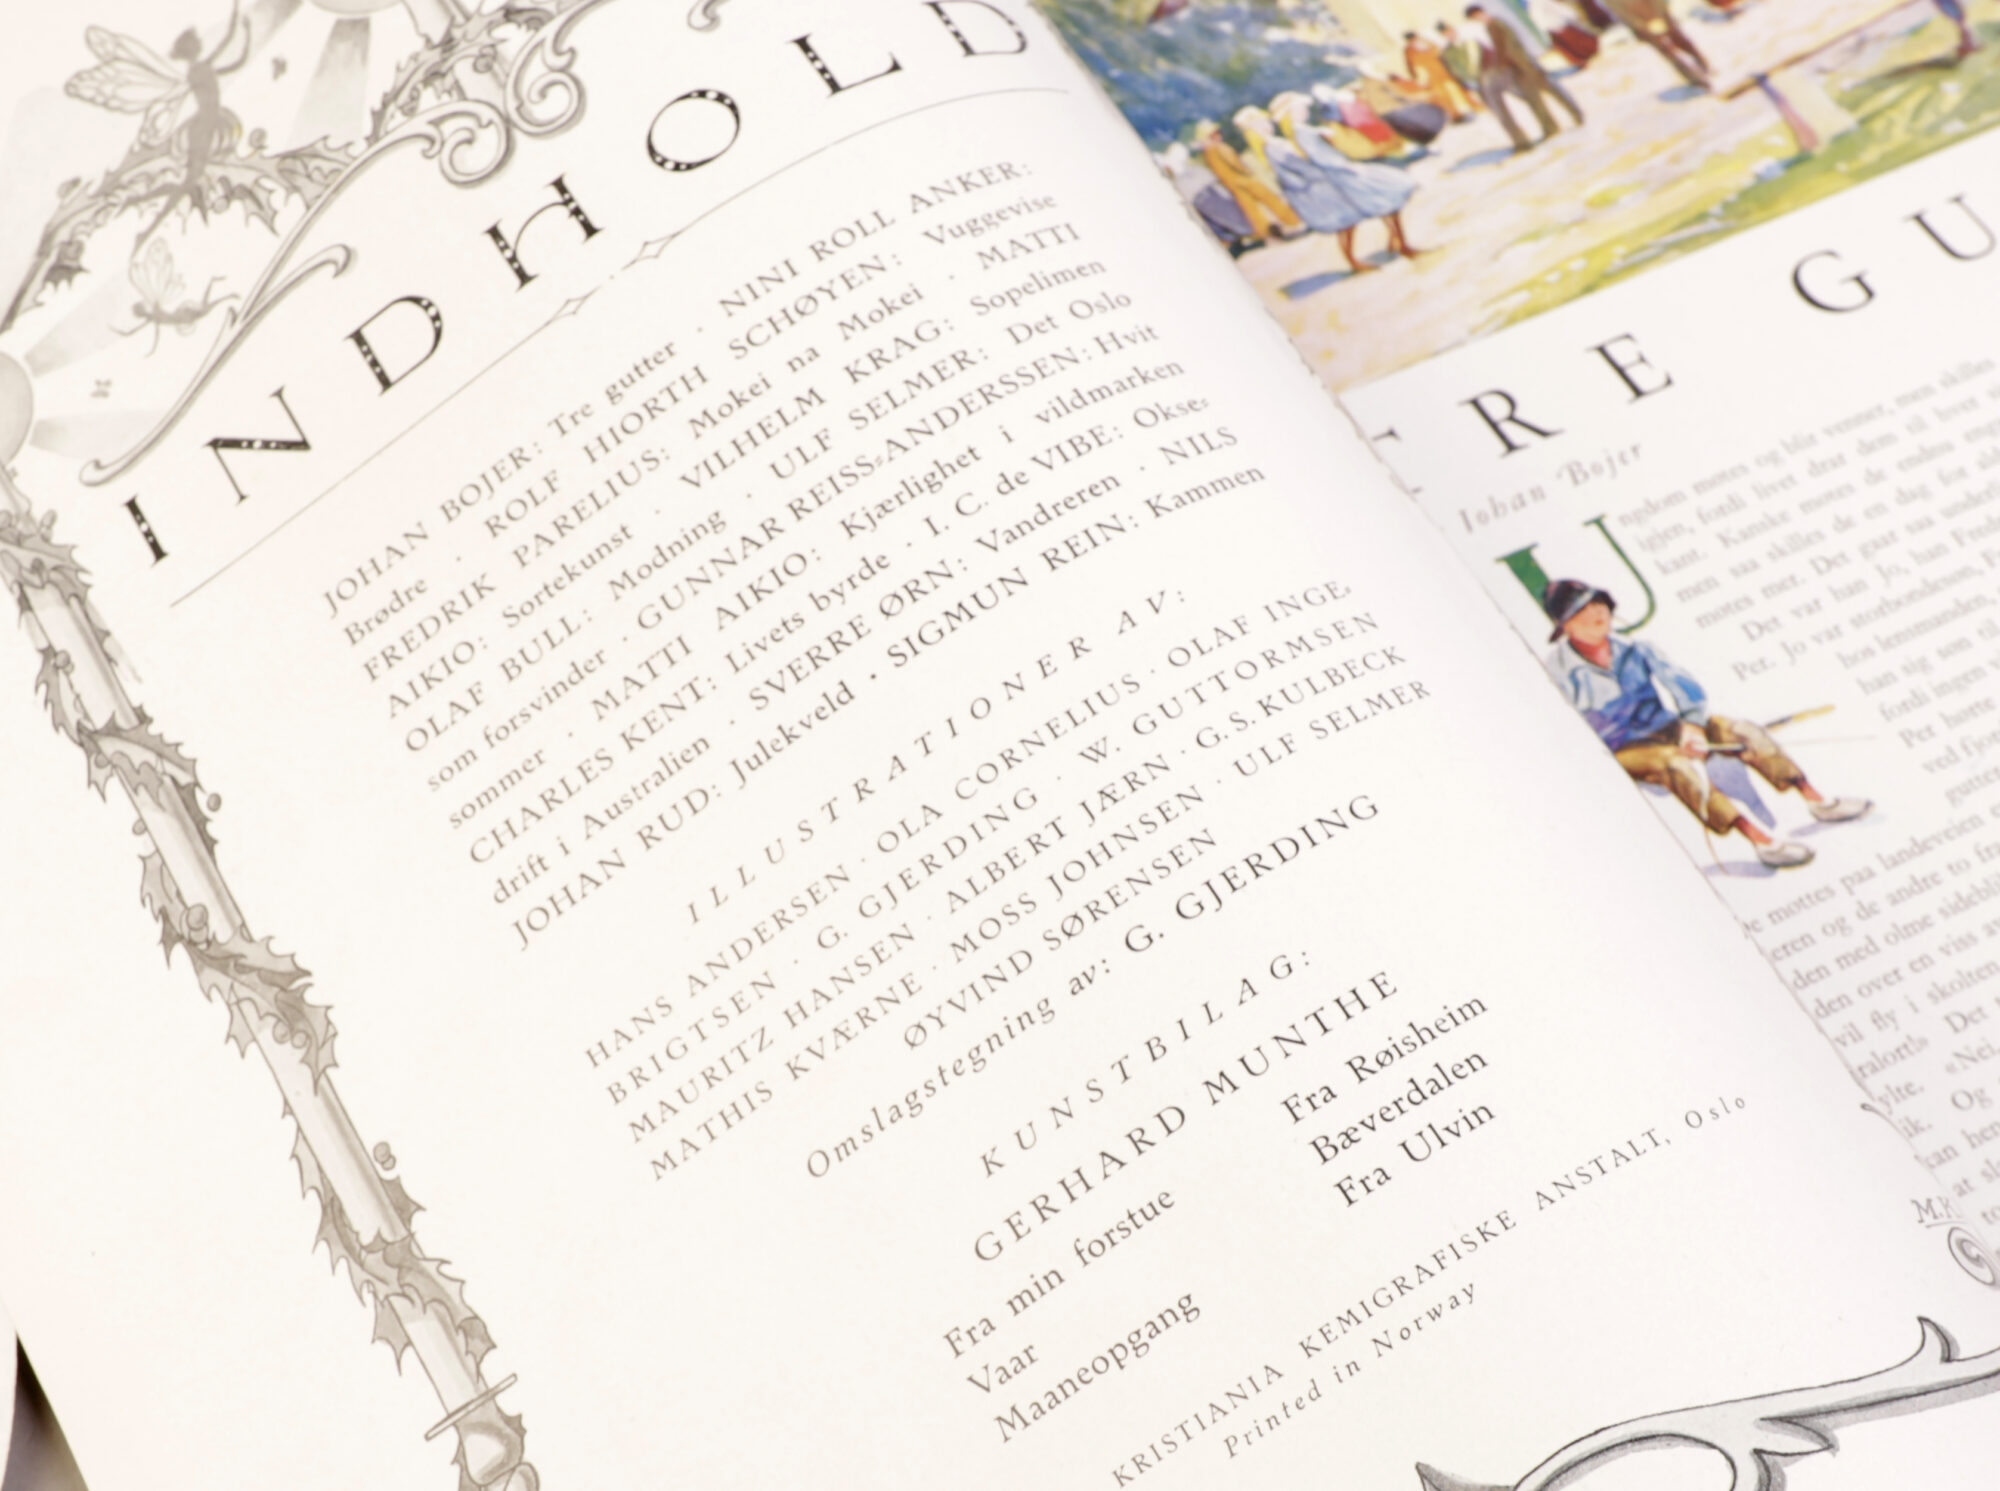 INDHOLD
JOHAN BOJER: Tre gutter · NINI ROLL ANKER:
Brødre · ROLF HIORTH SCHØYEN: Vuggevise
FREDRIK PARELIUS: Mokei na Mokei · MATTI
AIKIO: Sortekunst · VILHELM KRAG: Sopelimen
OLAF BULL: Modning · ULF SELMER: Det Oslo
som forsvinder · GUNNAR REISS-ANDERSSEN: Hvit
sommer · MATTI AIKIO: Kjærlighet i vildmarken
CHARLES KENT: Livets byrde · I. C. de VIBE: Okse-
drift i Australien · SVERRE ØRN: Vandreren · NILS
JOHAN RUD: Julekveld · SIGMUN REIN: Kammen
ILLUSTRATIONER AV:
HANS ANDERSEN · OLA CORNELIUS · OLAF INGE-
BRIGTSEN · G. GJERDING · W. GUTTORMSEN
MAURITZ HANSEN · ALBERT JÆRN · G. S. KULBECK
MATHIS KVÆRNE · MOSS JOHNSEN · ULF SELMER
ØYVIND SØRENSEN
Omslagstegning av: G. GJERDING
KUNSTBILAG:
GERHARD MUNTHE
Fra min forstue Fra Røisheim
Vaar Bæverdalen
Maaneopgang Fra Ulvin
KRISTIANIA KEMIGRAFISKE ANSTALT, Oslo
Printed in Norway
TRE GU
Johan Bojer
Ungdom møtes og blir venner, men skilles
igjen, fordi livet drar dem til hver
kant. Kanske møtes de endnu
men saa skilles de en dag for
møtes mer. Det gaar saa
Det var han Jo, han
Per. Jo var storbondesøn,
hos lensmanden,
han sig son til
fordi ingen
Per hørte
ved fjor
gutter
De møttes paa landeveien
eren og de andre to
den med olme
den over en viss
vil fly i skolten
Det
ylte. «Nei,
ik. Og
kan hen
at
M.K